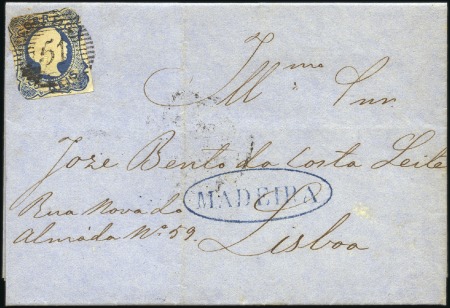 51
Ill.mo Snr.
Joze Bento da Costa Leite
MADEIRA
Rua Nova do
Almada Nº 59.
Lisboa